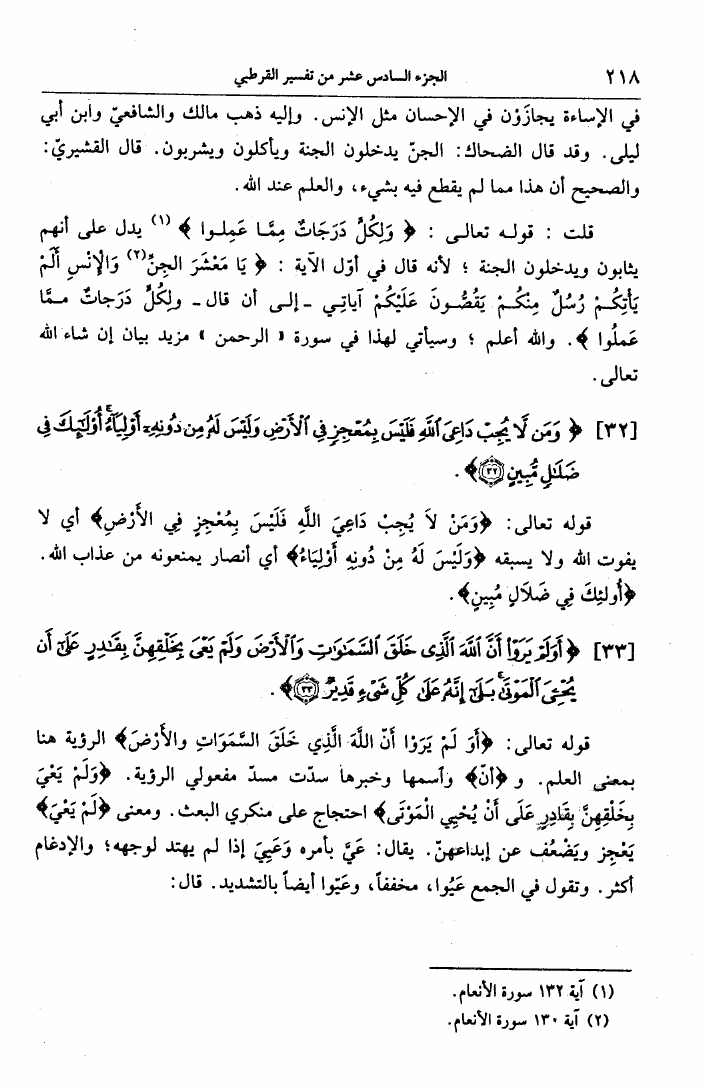 ٢١٨ الجزء السادس عشر من تفسير القرطبي
في الإساءة يجازَوْن في الإحسان مثل الإنس. وإليه ذهب مالك والشافعيّ وابن أبي
ليلى. وقد قال الضحاك: الجنّ يدخلون الجنة ويأكلون ويشربون. قال القشيريّ:
والصحيح أن هذا مما لم يقطع فيه بشيء، والعلم عند الله.
قلت : قوله تعالى : ﴿ وَلِكُلٍّ دَرَجَاتٌ مِمَّا عَمِلوا ﴾ (١) يدل على أنهم
يثابون ويدخلون الجنة ؛ لأنه قال في أوّل الآية : ﴿ يَا مَعْشَرَ الجِنِّ(٢) وَالإنْسِ أَلَمْ
يَأْتِكُمْ رُسُلٌ مِنْكُمْ يَقُصُّونَ عَلَيْكُمْ آياتِي ـ إلى أن قال ـ ولِكُلٍّ دَرَجاتٌ ممَّا
عَمِلُوا ﴾. والله أعلم ؛ وسيأتي لهذا في سورة « الرحمن » مزيد بيان إن شاء الله
تعالى.
[٣٢] ﴿ وَمَن لَّا يُجِبْ دَاعِيَ ٱللَّهِ فَلَيْسَ بِمُعْجِزٍ فِي ٱلْأَرْضِ وَلَيْسَ لَهُۥ مِن دُونِهِۦٓ أَوْلِيَآءُۚ أُوْلَٰٓئِكَ فِي
ضَلَٰلٍ مُّبِينٍ ٣٢ ﴾ .
قوله تعالى: ﴿وَمَنْ لاَ يُجِبْ دَاعِيَ اللَّهِ فَلَيْسَ بِمُعْجِزٍ فِي الأَرْضِ﴾ أي لا
يفوت الله ولا يسبقه ﴿وَلَيْسَ لَهُ مِنْ دُونِهِ أَوْلِيَاءُ﴾ أي أنصار يمنعونه من عذاب الله.
﴿أُولئِكَ فِي ضَلاَلٍ مُبِينٍ﴾.
[٣٣] ﴿ أَوَلَمْ يَرَوْاْ أَنَّ ٱللَّهَ ٱلَّذِي خَلَقَ ٱلسَّمَٰوَٰتِ وَٱلْأَرْضَ وَلَمْ يَعْيَ بِخَلْقِهِنَّ بِقَٰدِرٍ عَلَىٰٓ أَن
يُحْـِۧيَ ٱلْمَوْتَىٰۚ بَلَىٰٓ إِنَّهُۥ عَلَىٰ كُلِّ شَيْءٍ قَدِيرٌ ٣٣ ﴾ .
قوله تعالى: ﴿أَوَ لَمْ يَرَوْا أَنّ اللَّهَ الَّذِي خَلَقَ السَّمَوَاتِ والأَرْضَ﴾ الرؤية هنا
بمعنى العلم. و ﴿أنّ﴾ وأسمها وخبرها سدّت مسدّ مفعولي الرؤية. ﴿وَلَمْ يَعْيَ
بِخَلْقِهِنَّ بِقَادِرٍ عَلَى أَنْ يُحْيِي الْمَوْتَى﴾ احتجاج على منكري البعث. ومعنى ﴿لَمْ يَعْيَ﴾
يَعْجِز ويَضْعُف عن إبداعهنّ. يقال: عَيَّ بأمره وَعَيِيَ إذا لم يهتد لوجهه؛ والإدغام
أكثر. وتقول في الجمع عَيُوا، مخففاً، وعَيّوا أيضاً بالتشديد. قال:
(١) آية ١٣٢ سورة الأنعام.
(٢) آية ١٣٠ سورة الأنعام.